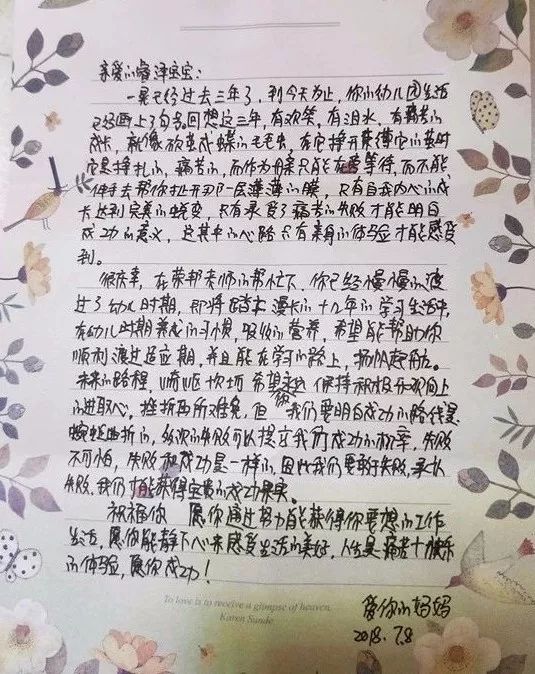 亲爱的睿泽宝宝：
一晃已经过去三年了，到今天为止，你的幼儿园生活
已经画上了句号。回想这三年，有欢笑，有泪水，有痛苦的
成长，就像欲变成蝶的毛毛虫，在它挣开束缚它的茧时
它是挣扎的，痛苦的，而作为母亲只能在旁等待，而不能
伸手去帮你扯开那一层薄薄的膜，只有自我内心的成
长达到完美的蜕变，只有承受了痛苦的失败才能明白
成功的意义，这其中的心路只有亲身的体验才能感受
到。
很庆幸，在荣邦老师的帮忙下，你已经慢慢的渡
过了幼儿时期，即将踏来漫长的十几年的学习生活中，
在幼儿时期养成的习惯，吸收的营养，希望能帮助你
顺利渡过适应期，并且能在学习的路上，扬帆起航。
未来的路程，崎岖坎坷 希望你 保持积极乐观向上
的进取心，挫折在所难免，但我们要明白成功的路线是
蜿蜒曲折的，每次的失败可以提高我们成功的机率，失败
不可怕，失败和成功是一样的，因此我们要敢于失败，承认
失败，我们才能获得宝贵的成功果实。
祝福你 愿你通过努力能获得你要想的工作
生活，愿你能静下心来感受生活的美好，人生是痛苦十快乐
的体验，愿你成功！
To love is to receive a glimpse of heaven.
Karen Sunde
爱你的妈妈
2018.7.8